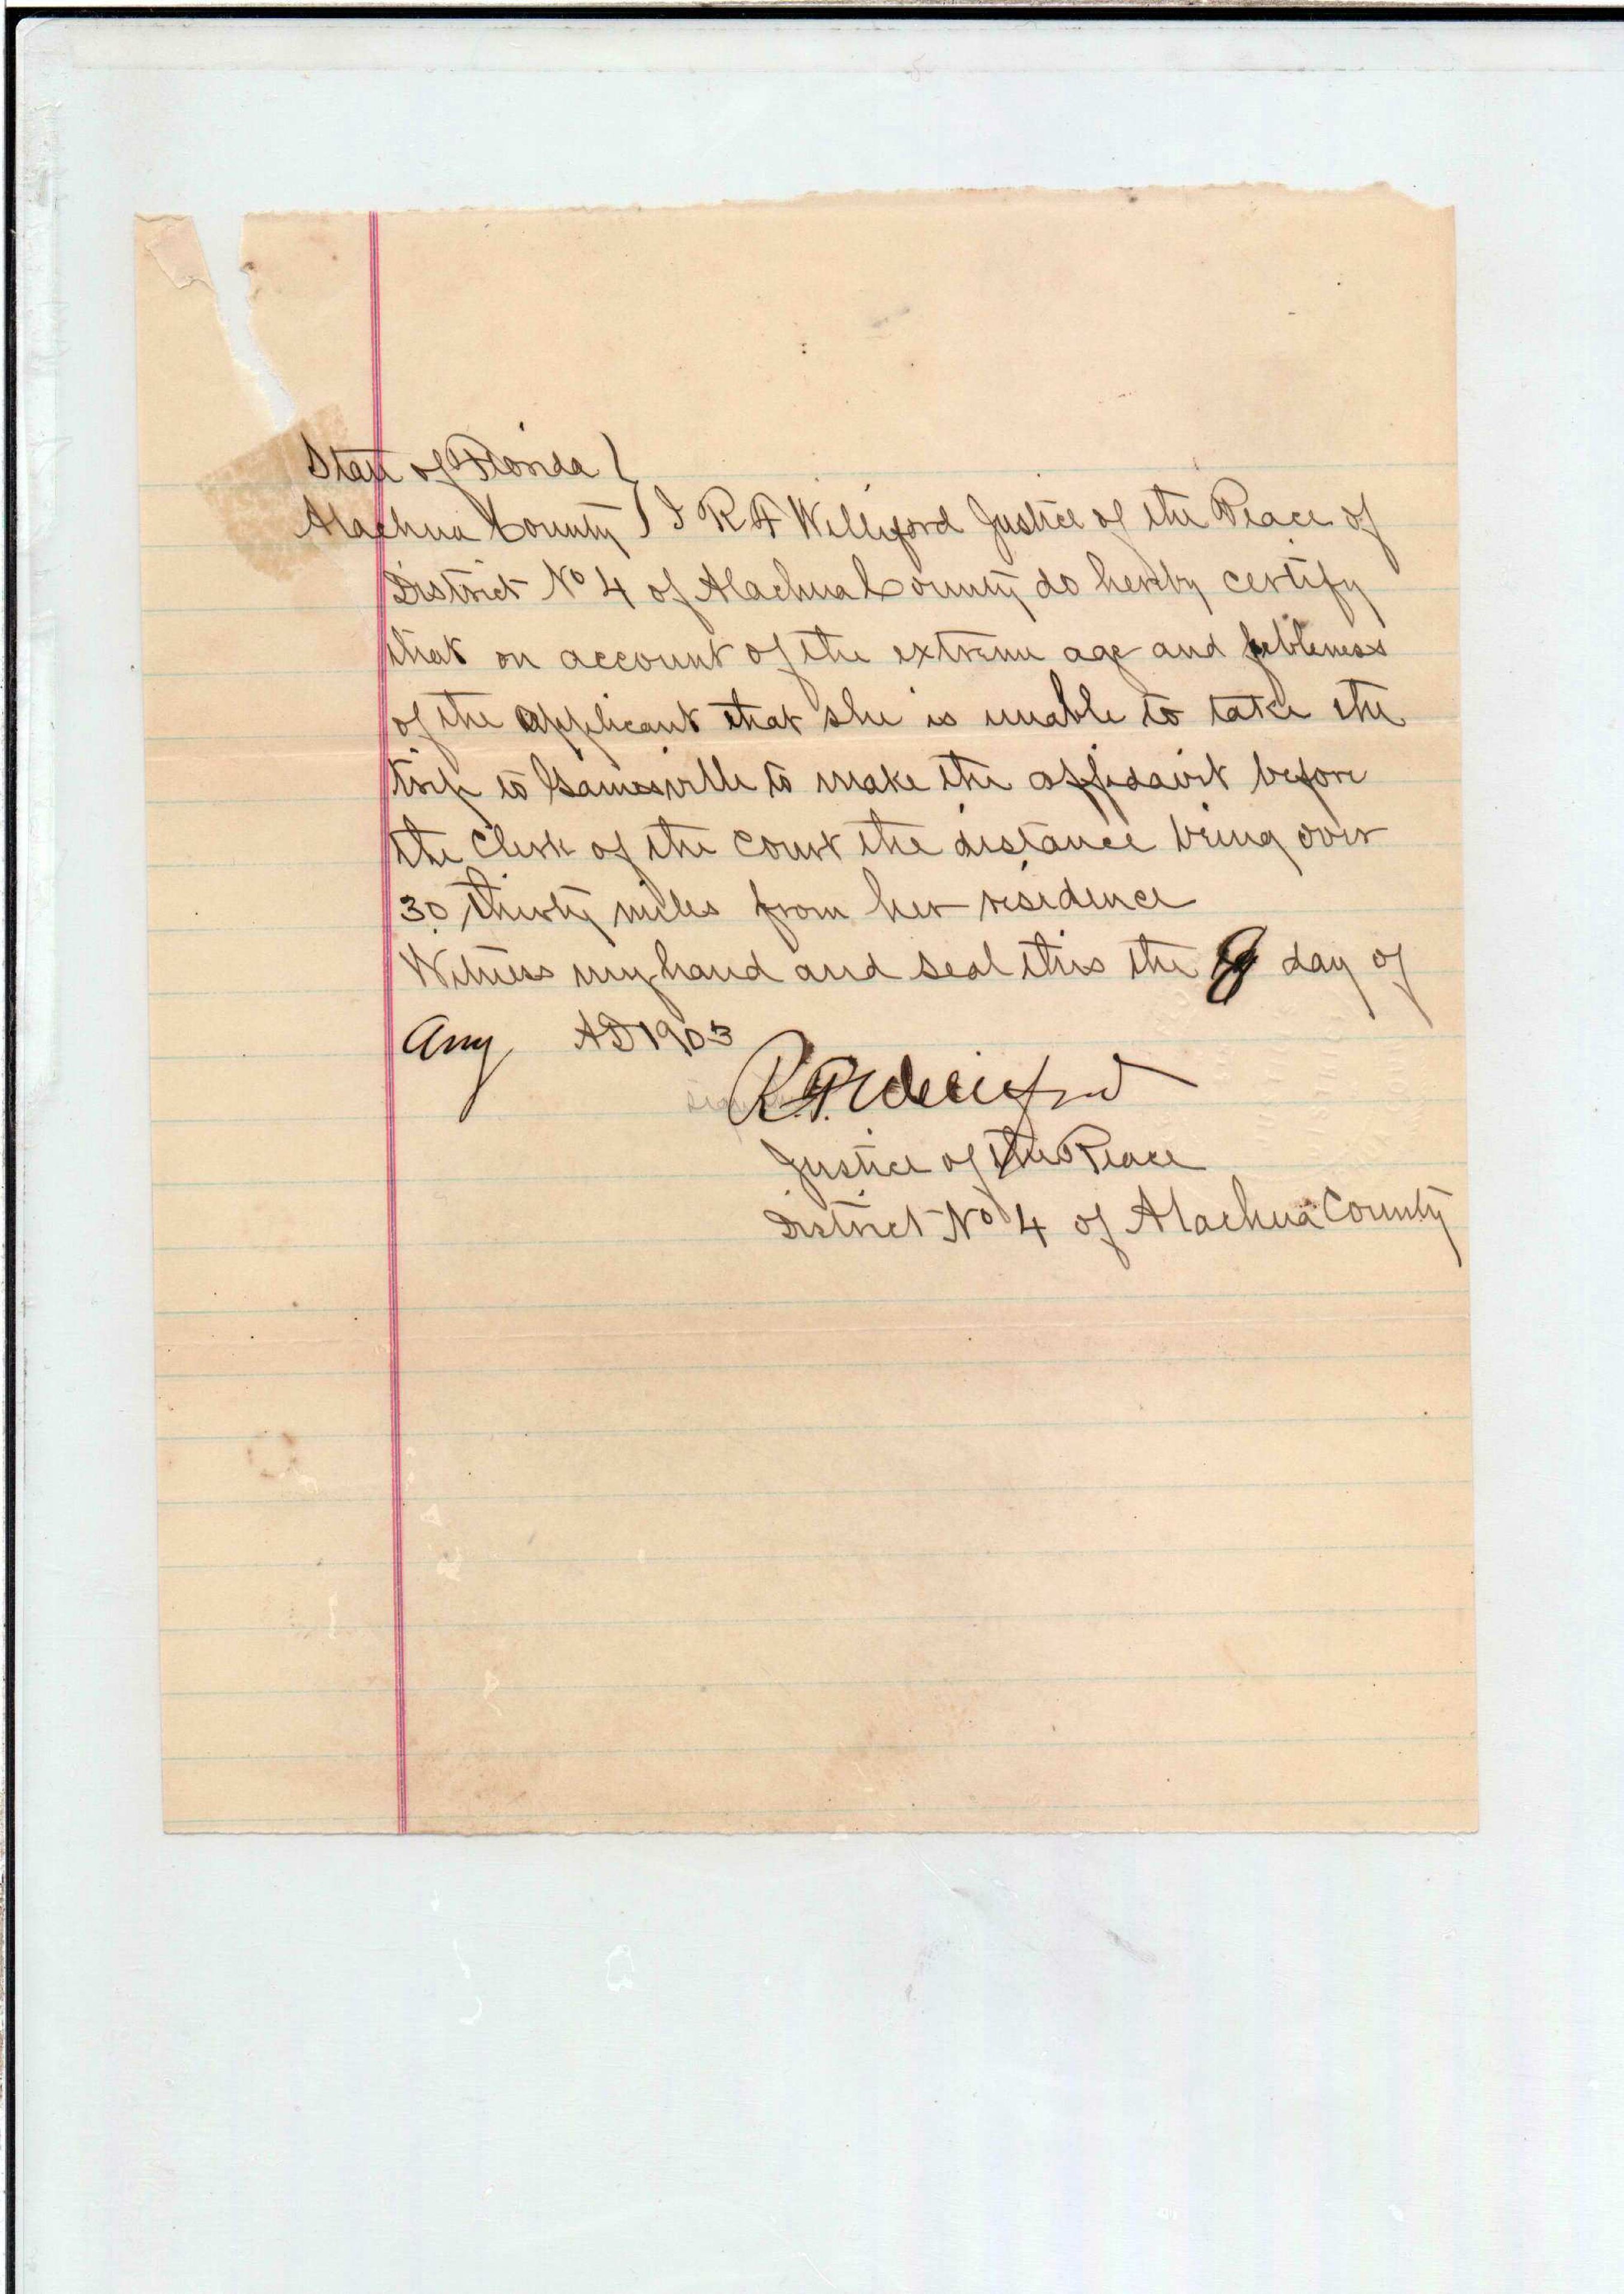 State of Florida }
Alachua County } I R F Williford Justice of the Peace of
District No 4 of Alachua County do hereby certify
that on account of the extreme age and febleness
of the applicant that she is unable to take the
trip to Gainesville to make the affidavit before
the Clerk of the Court the distance being over
30 thirty miles from her residence
Witness my hand and seal this the day of
Aug AD 1903
R.F. Williford
Justice of the Peace
District No 4 of Alachua County